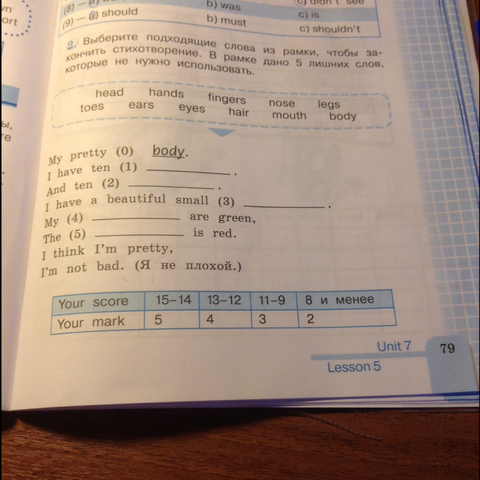 b) was
c) didn't see
(9) — a) should
b) must
c) is
c) shouldn't
2. Выберите подходящие слова из рамки, чтобы за-
кончить стихотворение. В рамке дано 5 лишних слов,
которые не нужно использовать.
head hands fingers nose legs
toes ears eyes hair mouth body
My pretty (0) body.
I have ten (1) ____________ .
And ten (2) ____________ .
I have a beautiful small (3) ____________ .
My (4) ____________ are green,
The (5) ____________ is red.
I think I'm pretty,
I'm not bad. (Я не плохой.)
Your score 15–14 13–12 11–9 8 и менее
Your mark 5 4 3 2
Unit 7 79
Lesson 5